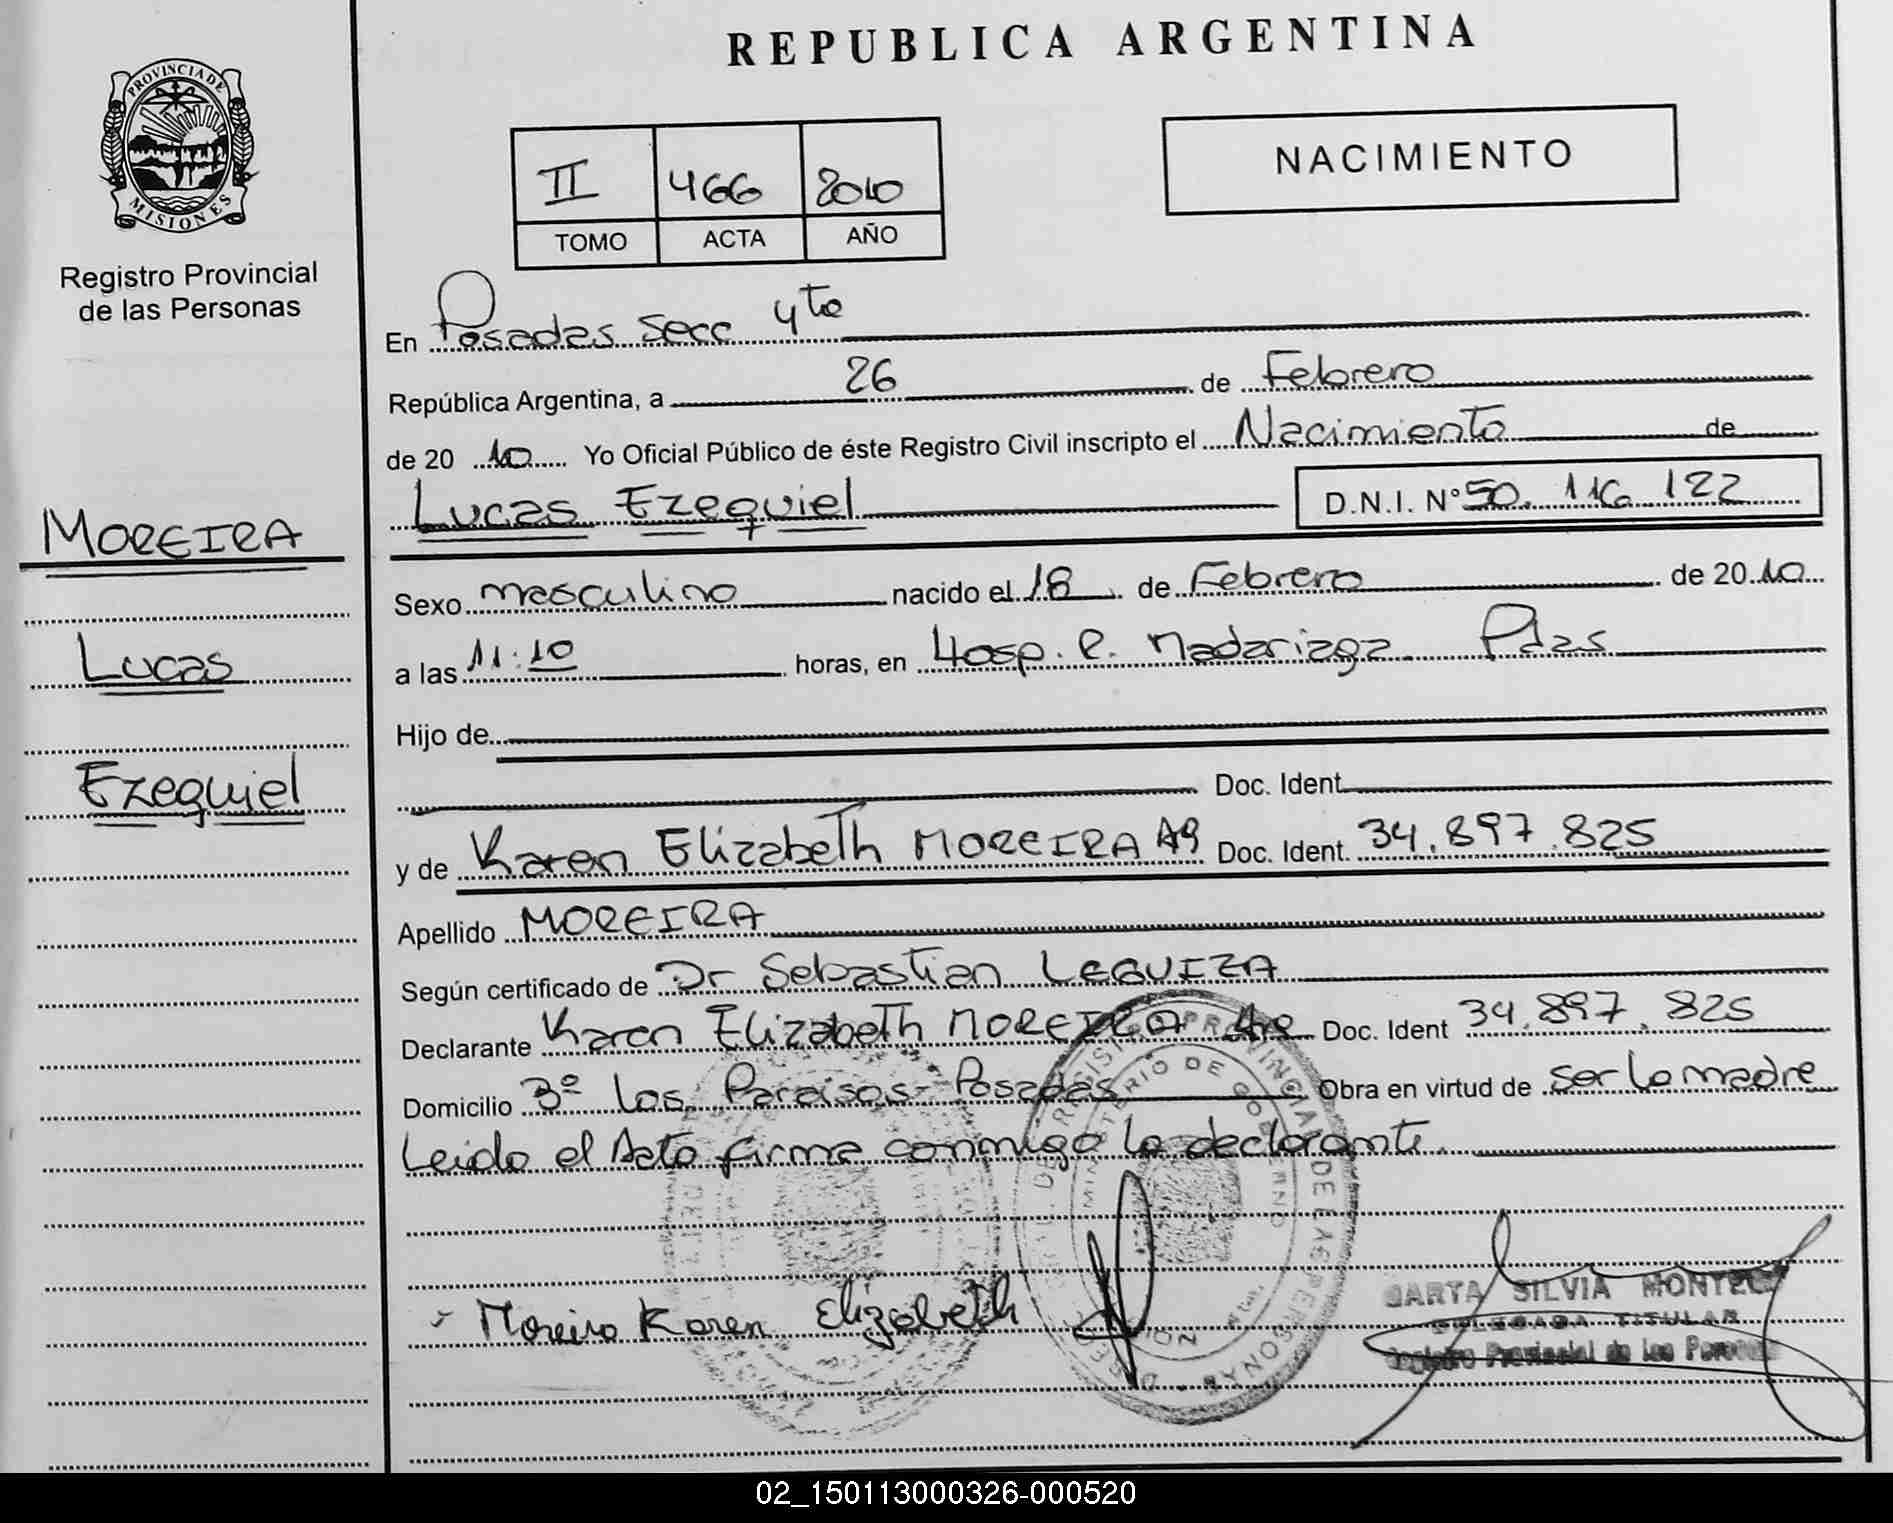 REPUBLICA ARGENTINA
PROVINCIA DE
MISIONES
Registro Provincial
de las Personas
NACIMIENTO
II 466 2010
TOMO ACTA AÑO
En Posadas Secc 4ta
República Argentina, a 26 de Febrero
de 20 10 Yo Oficial Público de éste Registro Civil inscripto el Nacimiento de
Lucas Ezequiel D.N.I. N° 50.116.122
MOREIRA
Lucas
Ezequiel
Sexo masculino nacido el 18 de Febrero de 20 10
a las 11:10 horas, en Hosp. R. Madariaga Pdas
Hijo de
Doc. Ident.
y de Karen Elizabeth MOREIRA 19 Doc. Ident. 34.897.825
Apellido MOREIRA
Según certificado de Dr Sebastian LEGUIZA
Declarante Karen Elizabeth MOREIRA Doc. Ident 34.897.825
Domicilio Bº Los Paraisos - Posadas Obra en virtud de ser la madre
Leido el Acta firma conmigo la declarante.
REGISTRO PROVINCIAL DE LAS PERSONAS
MINISTERIO DE GOBIERNO
Moreira Karen Elizabeth
SILVIA
DELEGADA TITULAR
Registro Provincial de las Personas
02_150113000326-000520